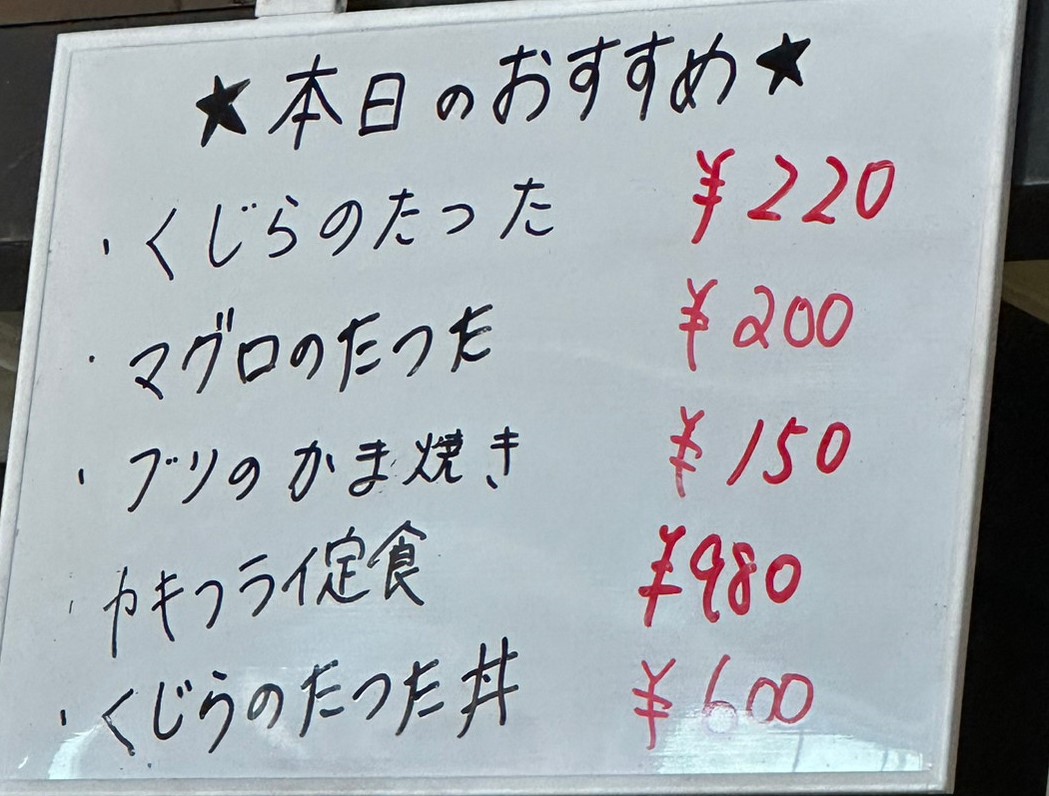 ★本日のおすすめ★
・くじらのたつた ¥220
・マグロのたつた ¥200
・ブリのかま焼き ¥150
・カキフライ定食 ¥980
・くじらのたつた丼 ¥600